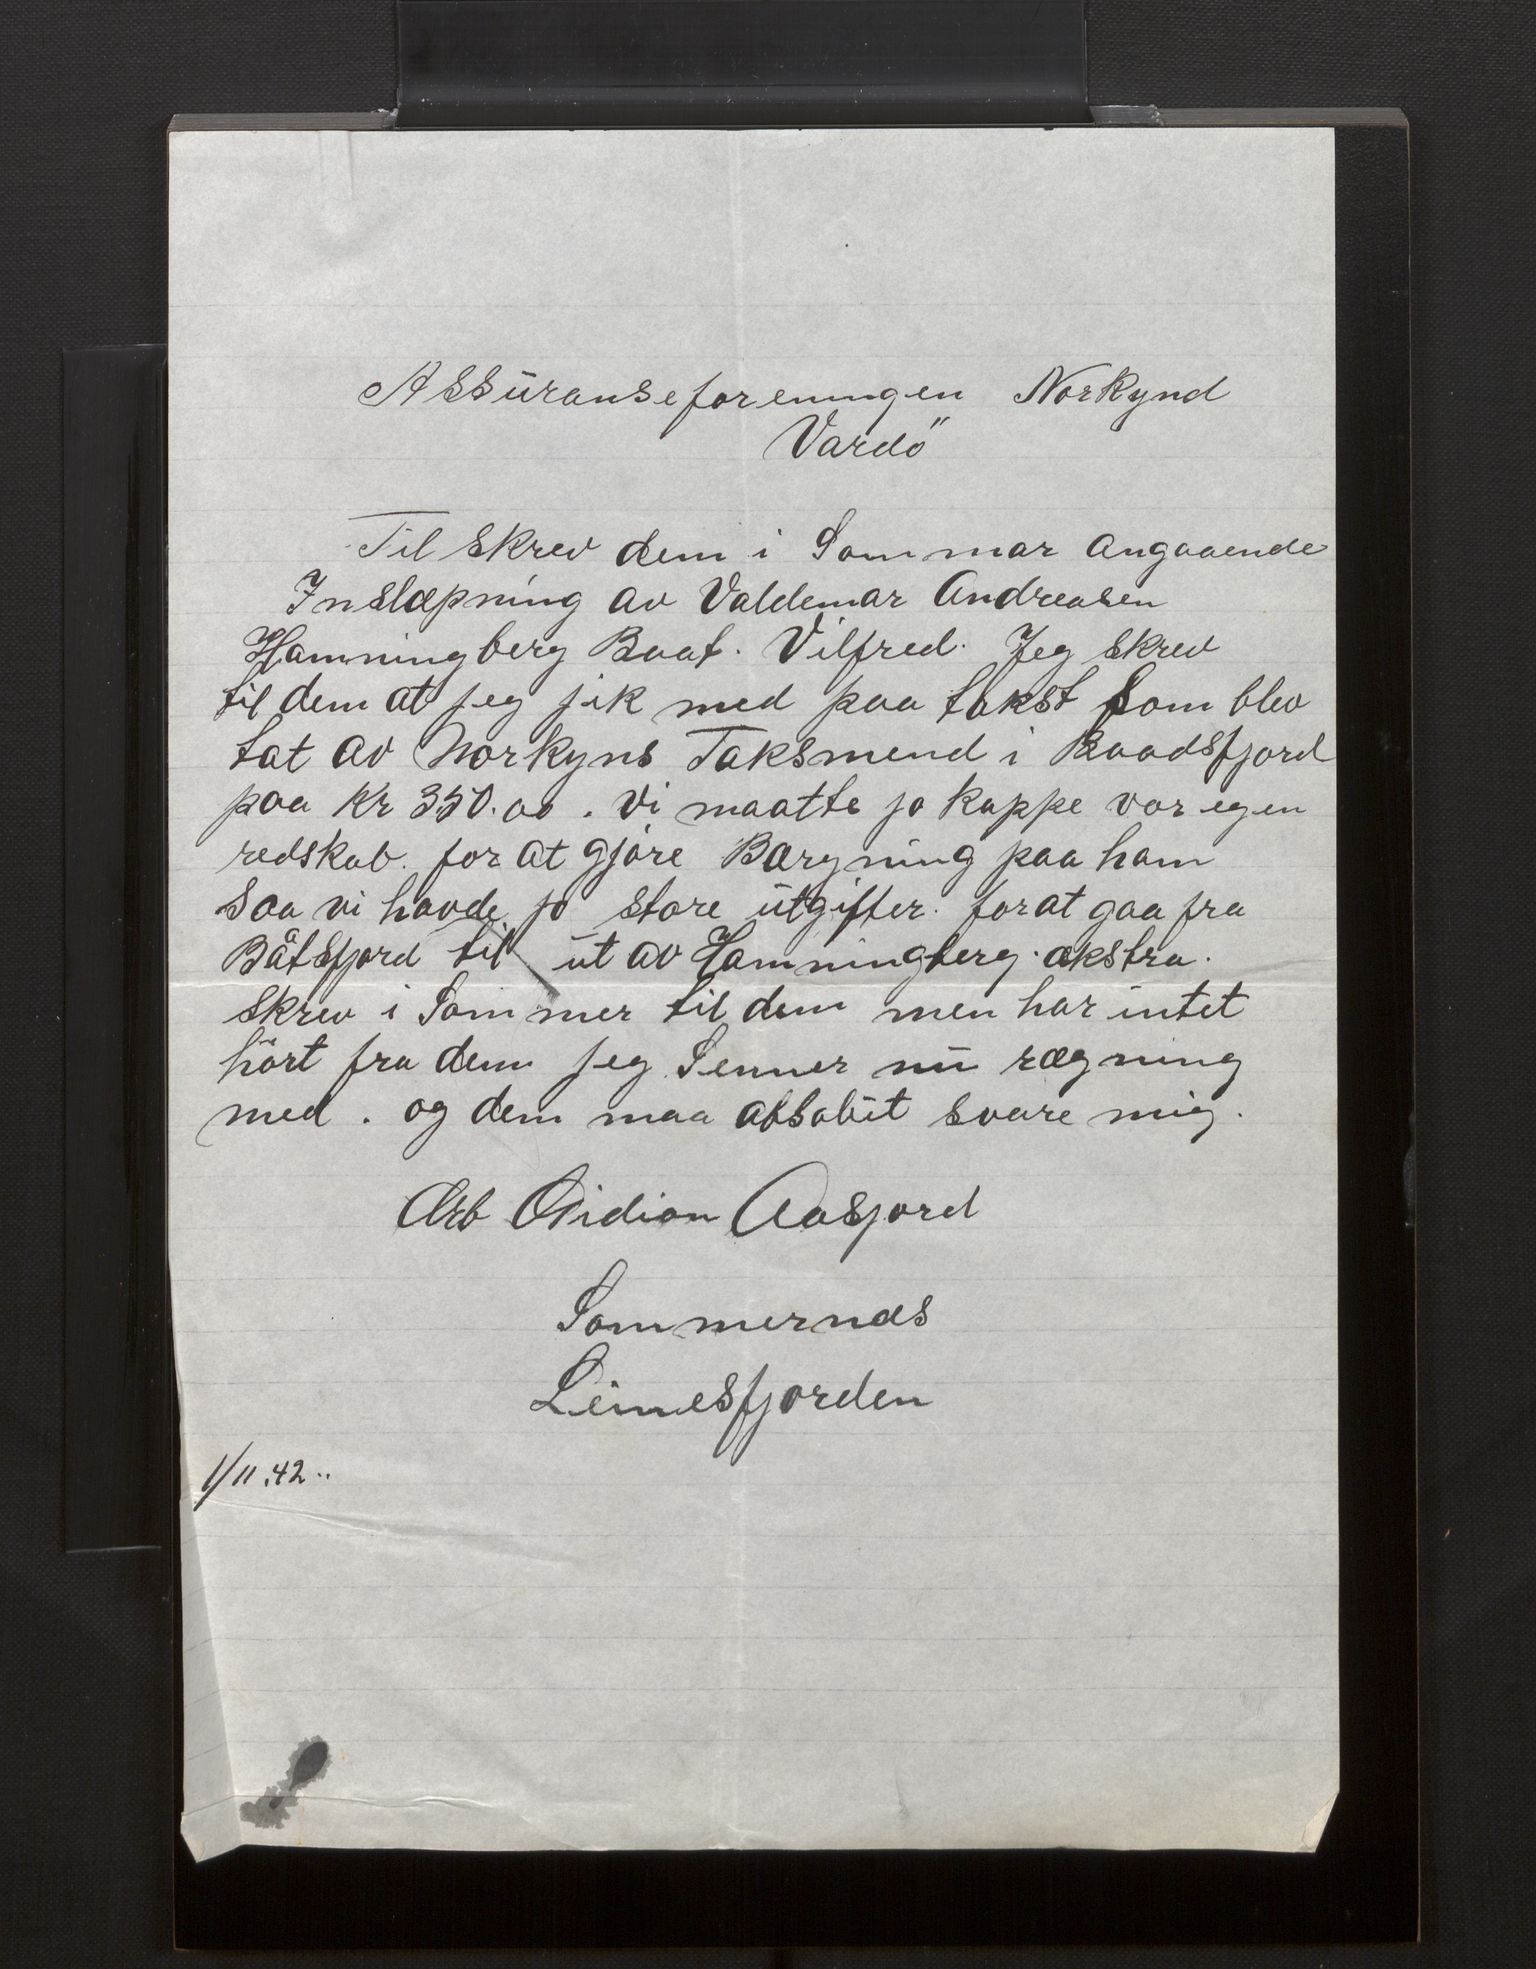 Assüranseforeningen Norkynd
Vardö
Til skrev dem i Sommar angaaende
Inslæpning av Valdemar Andreasen
Hamningberg Baat. Vilfred. Jeg skrev
til dem at jeg jik med paa takst som blev
tat av Norkyns Taksmend i Baadsfjord
paa Kr 350.00. Vi maatte jo kappe vor egen
redskab. for at gjöre Bærgning paa ham
Saa vi havde jo store ütgifter. for at gaa fra
Båtsfjord til üt av Hamningberg. ækstra.
Skrev i Sommer til dem men har intet
hört fra dem Jeg Senner nü rægning
med. og dem maa absolüt svare mig.
Ærb Aasjord
Sommernæs
Leinesfjorden
1/11.42..